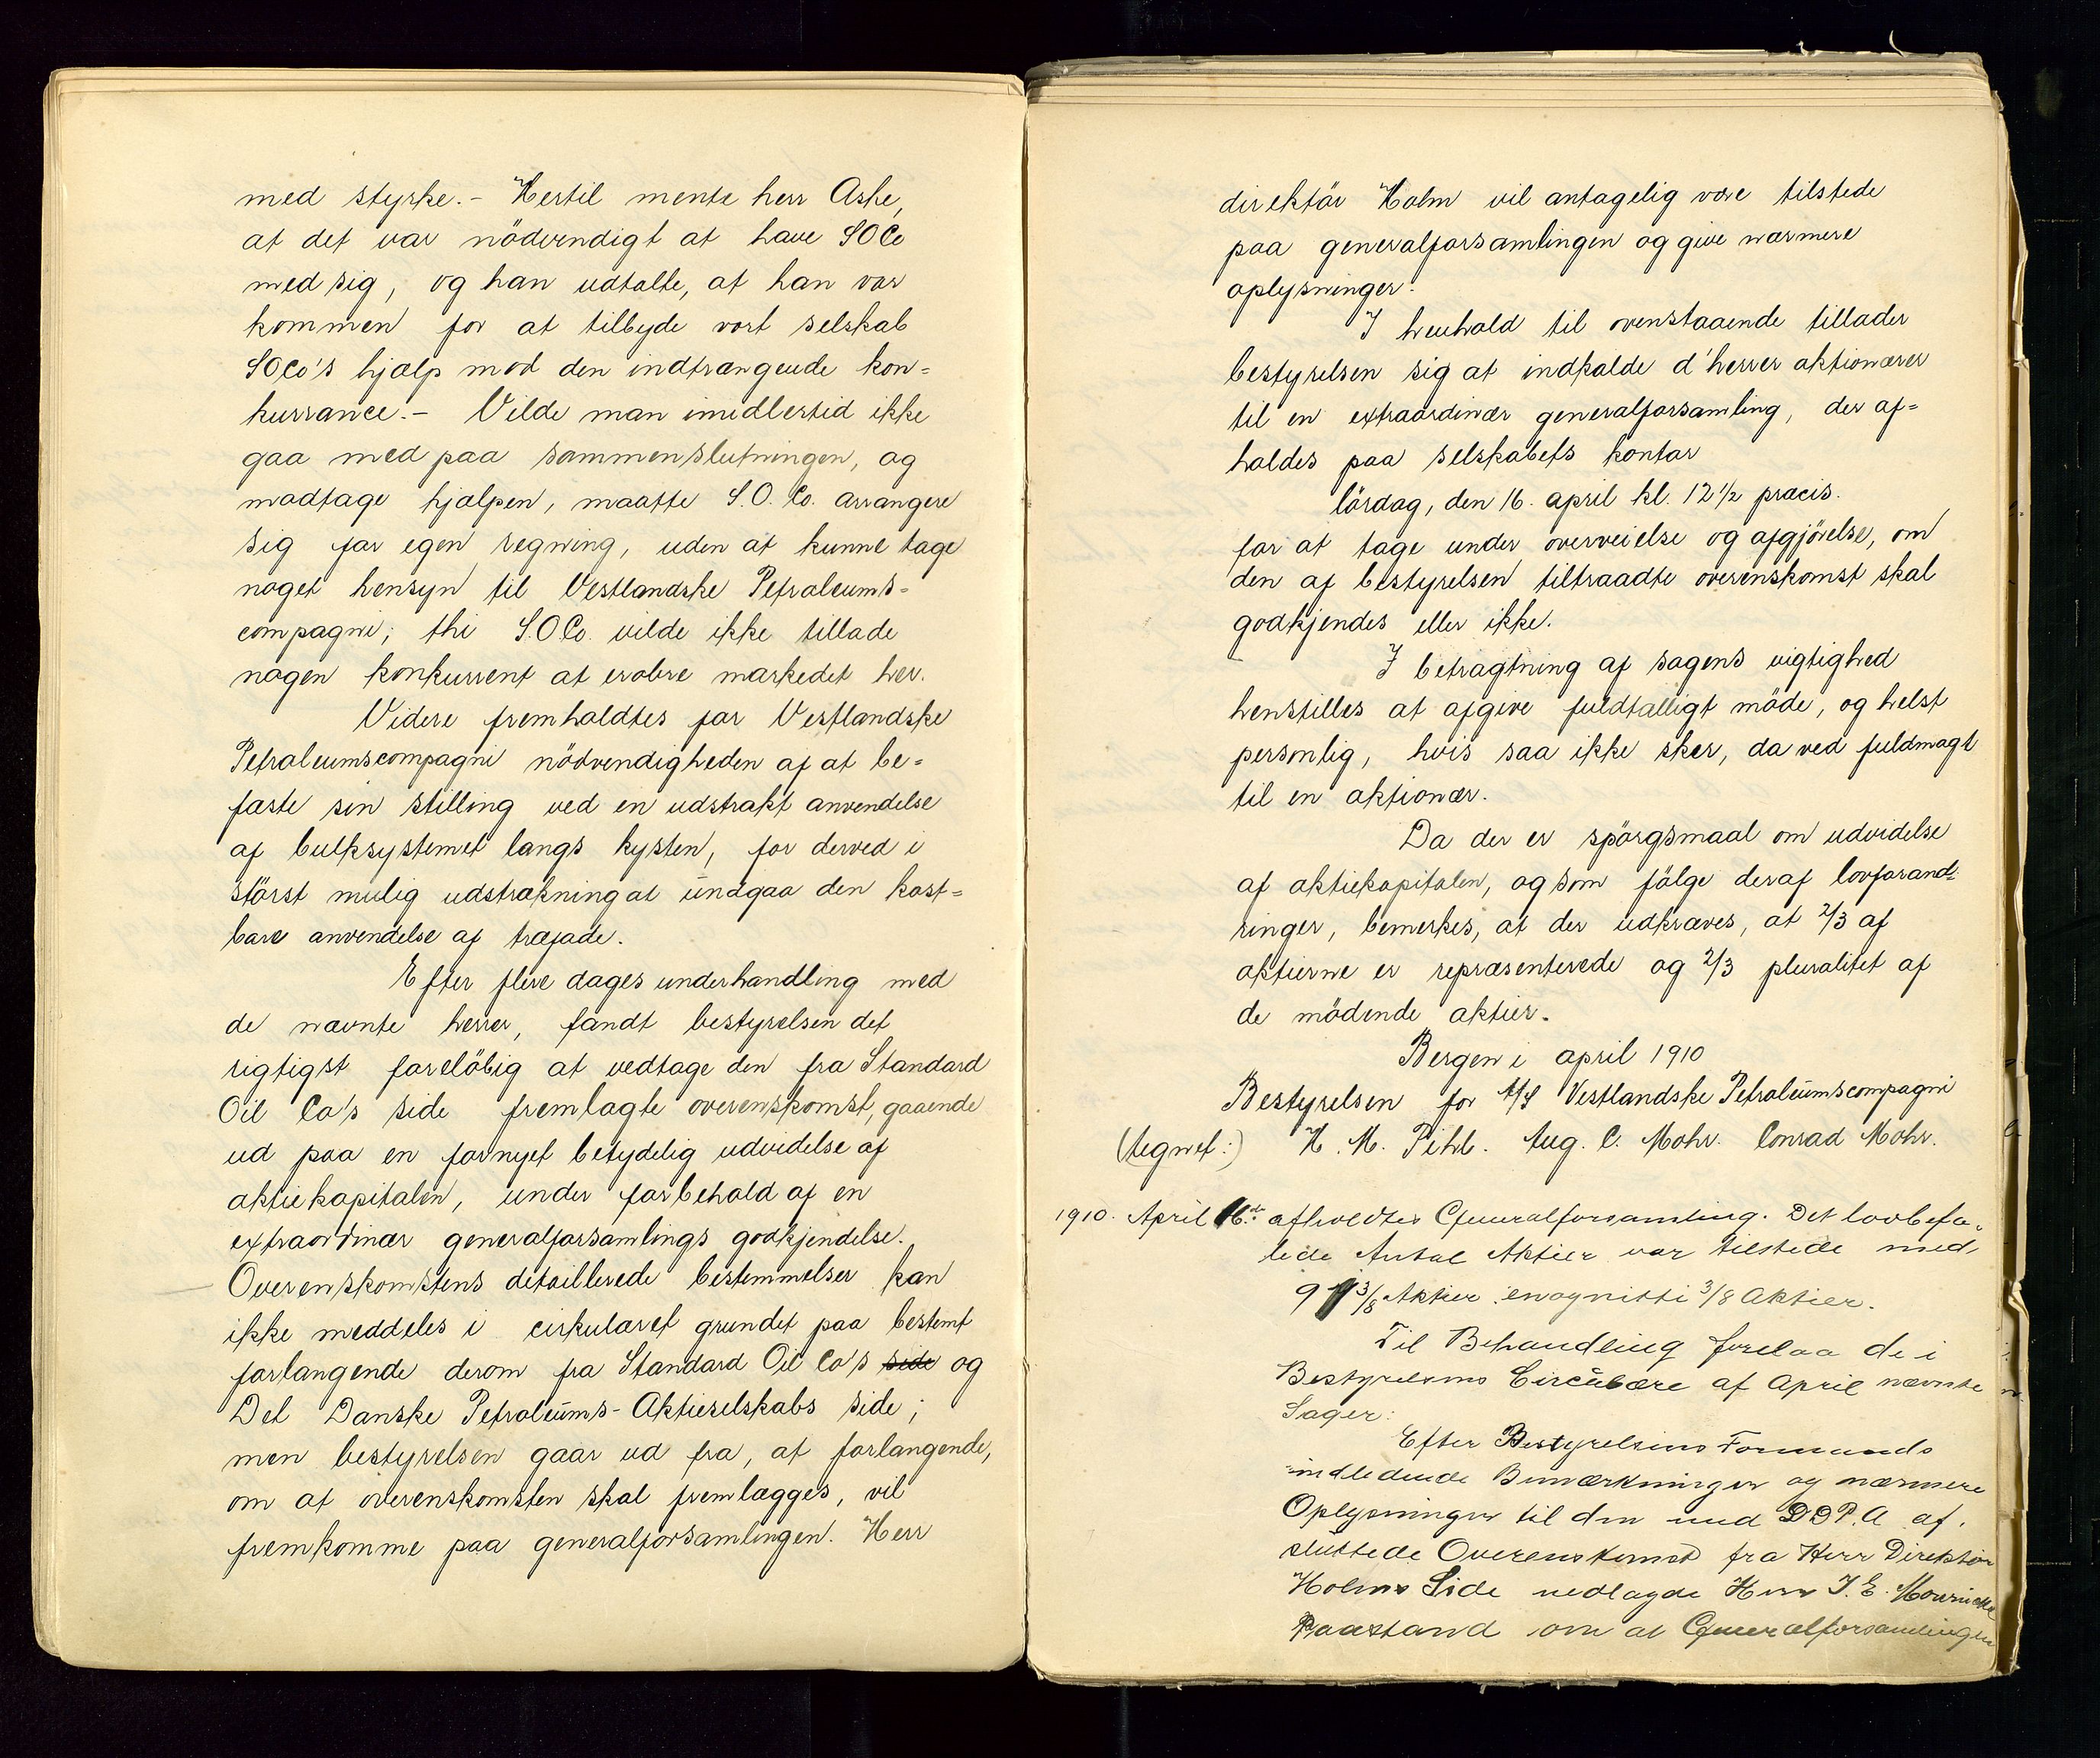 med styrke.- Hertil mente herr Aske,
at det var nödvendigt at have SOCo
med sig, og han udtalte, at han var
kommen for at tilbyde vort selskab
SOCo's hjælp mod den indtrængende kon=
kurrance.- Vilde man imidlertid ikke
gaa med paa sammenslutningen, og
modtage hjælpen, maatte S.O.Co. arrangere
sig for egen regning, uden at kunne tage
noget hensyn til Vestlandske Petroleums=
compagni; thi S.O.Co. vilde ikke tillade
nogen konkurrent at erobre markedet her.
Videre fremholdtes for Vestlandske
Petroleumscompagni nödvendigheden af at be=
fæste sin stilling ved en udstrakt anvendelse
af bulksystemet langs kysten, for derved i
störst mulig udstrækning at undgaa den kost=
bare anvendelse af træfade.
Efter flere dages underhandling med
de nævnte herrer, fandt bestyrelsen det
rigtigst foreløbig at vedtage den fra Standard
Oil Co's side fremlagte overenskomst, gaaende
ud paa en fornyet betydelig udvidelse af
aktiekapitalen, under forbehold af en
extraordinær generalforsamlings godkjendelse.
Overenskomstens detaillerede bestemmelser kan
ikke meddeles i cirkulæret grundet paa bestemt
forlangende derom fra Standard Oil Co's side og
Det Danske Petroleums-Aktieselskabs side;
men bestyrelsen gaar ud fra, at forlangende,
om at overenskomsten skal fremlægges, vil
fremkomme paa generalforsamlingen. Herr
direktör Holm vil antagelig være tilstede
paa generalforsamlingen og give nærmere
oplysninger.
I henhold til ovenstaaende tillader
bestyrelsen sig at indkalde d'herrer aktionærer
til en extraordinær generalforsamling, der af=
holdes paa selskabets kontor
lördag, den 16. april kl. 12 1/2 præcis.
for at tage under overveielse og afgjörelse, om
den af bestyrelsen tiltraadte overenskomst skal
godkjendes eller ikke.
I betragtning af sagens vigtighed
henstilles at afgive fuldtalligt möde, og helst
personlig, hvis saa ikke sker, da ved fuldmagt
til en aktionær.
Da der er spörgsmaal om udvidelse
af aktiekapitalen, og som fölge deraf lovforand=
ringer, bemerkes, at der udkræves, at 2/3 af
aktierne er repræsenterede og 2/3 pluralitet af
de mödende aktier.
Bergen i april 1910
Bestyrelsen for A/S Vestlandske Petroleumscompagni
(tegnet:) H. M. Pihl. Aug. C. Mohr. Conrad Mohr.
1910. April 16de afholdtes Generalforsamling. Det lovbefa-
lede Antal Aktier var tilstede med
91 3/8 Aktier: enognitti 3/8 Aktier.
Til Behandling forelaa de i
Bestyrelsens Circulære af April nævnte
Sager:
Efter Bestyrelsens Formands
indledende Bemærkninger og nærmere
Oplysninger til den med DDP.A af.
sluttede Overenskomst fra Herr Direktör
Holms Side nedlagde Herr J. E. Mowinckel
Paastand om at Generalforsamlingen